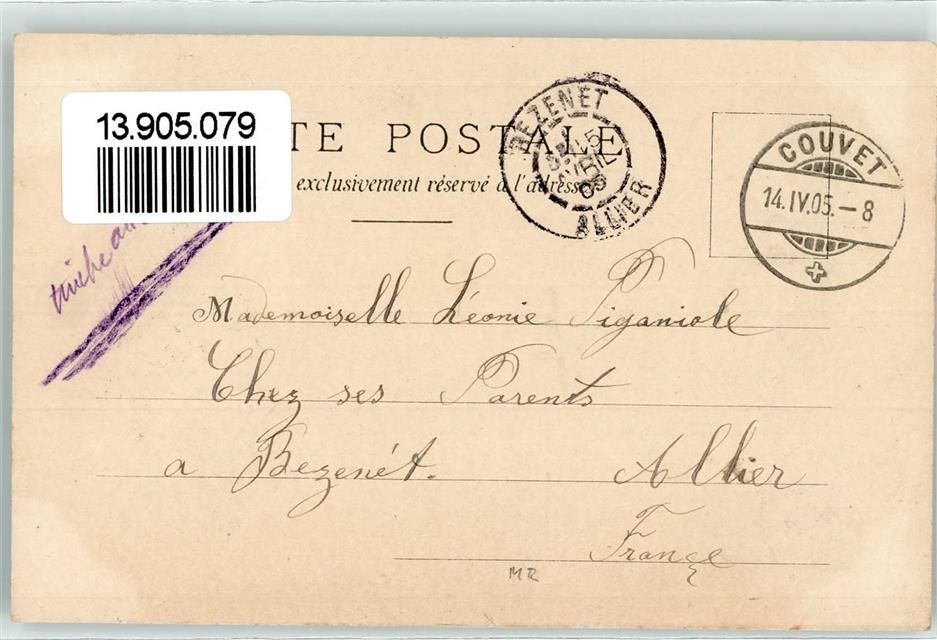 13.905.079
TE POSTALE
exclusivement réservé à l'adresse
BEZENET
15
AVRIL
05
ALLIER
COUVET
14.IV.05.-8
Mademoiselle Léonie Piganiole
Chez ses Parents
a Bezenét. Allier
France
MR